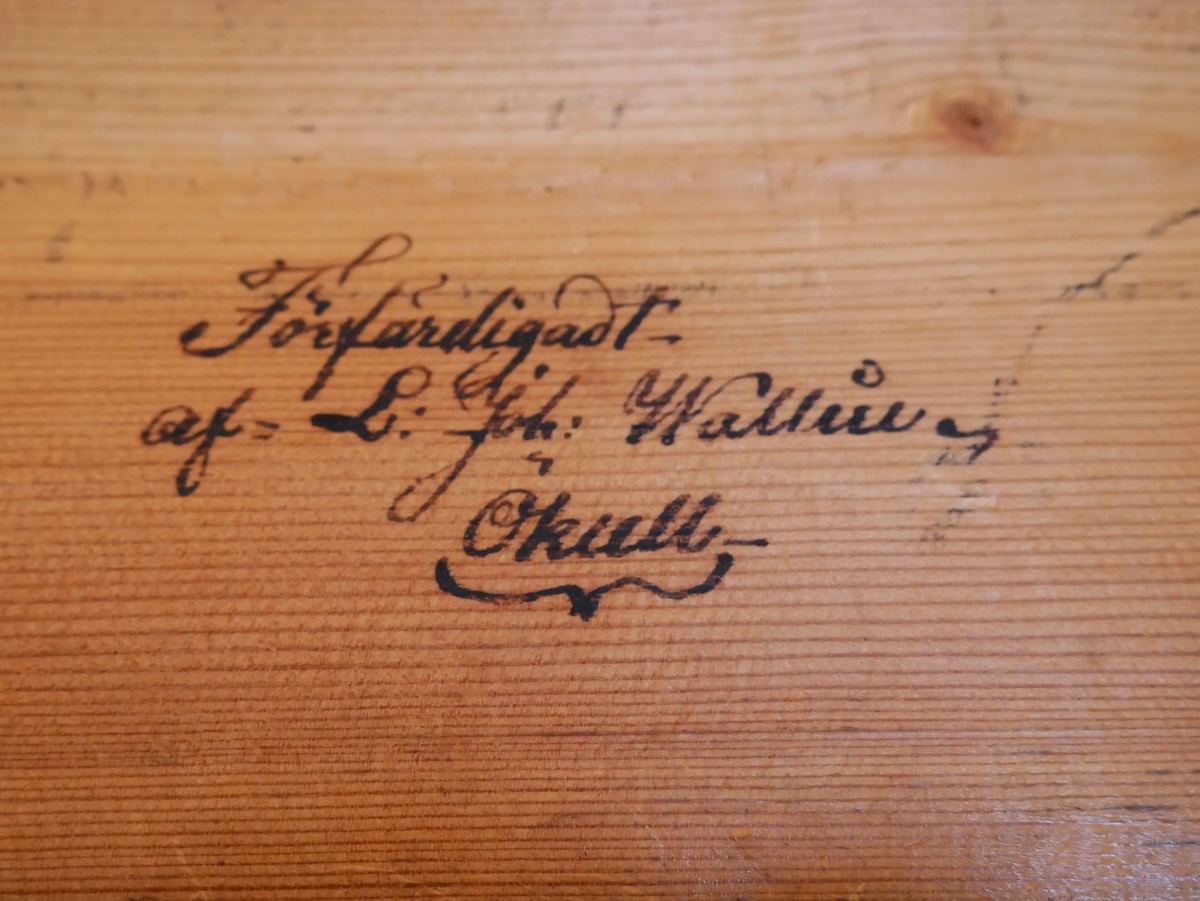 Förfärdigadt
af L: Joh: Wallin
Okull